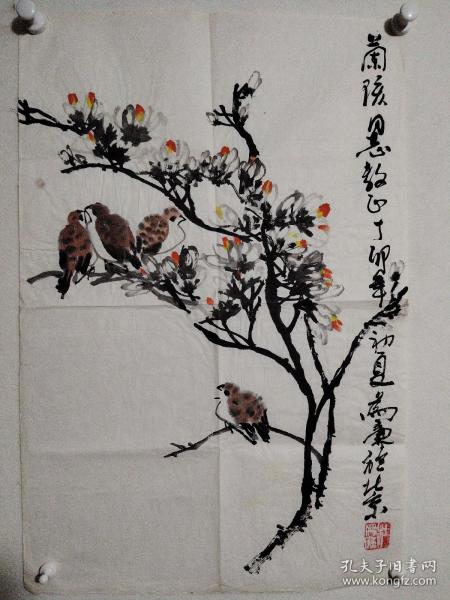 蘭陔同志教正丁卯年初夏尚兼於北京
孔夫子旧书网
www.kongfz.com